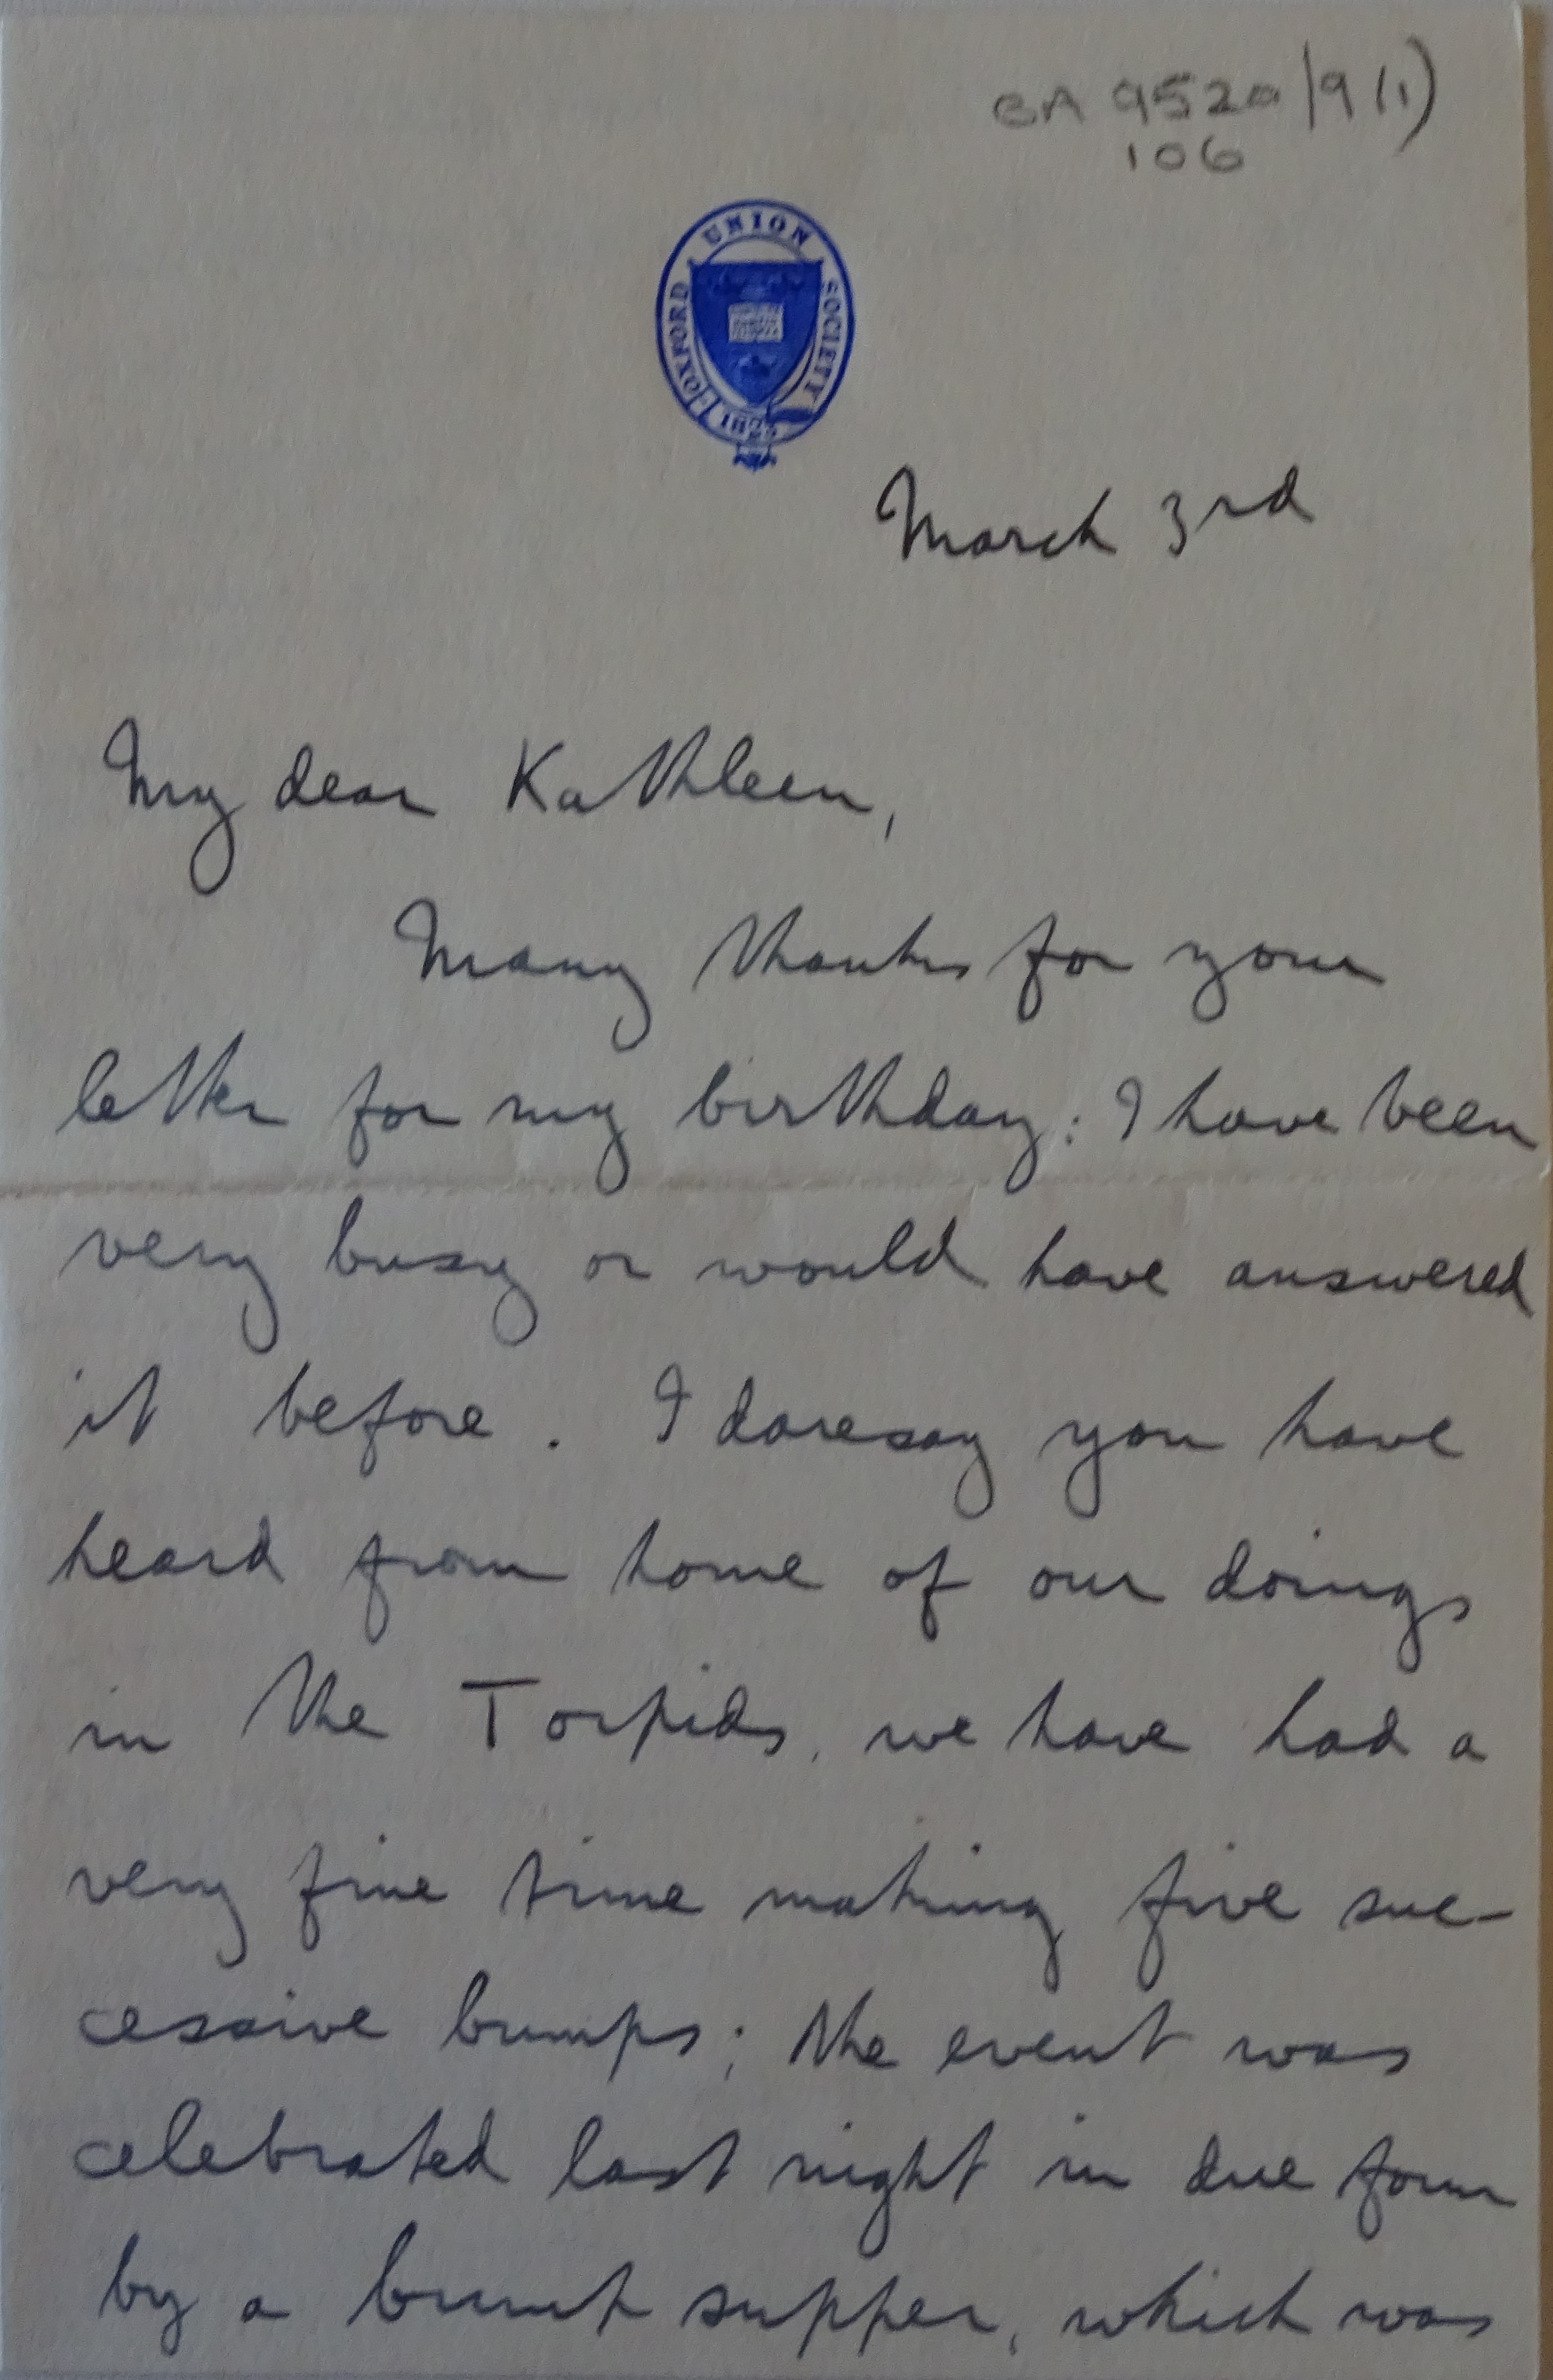 CA 9520/9(1)
106
OXFORD UNION SOCIETY
1823
March 3rd
My dear Kathleen,
Many thanks for your
letter for my birthday: I have been
very busy or would have answered
it before. I daresay you have
heard from home of our doings
in the Torpids. we have had a
very fine time making five suc-
cessive bumps; the event was
celebrated last night in due form
by a bump supper, which was